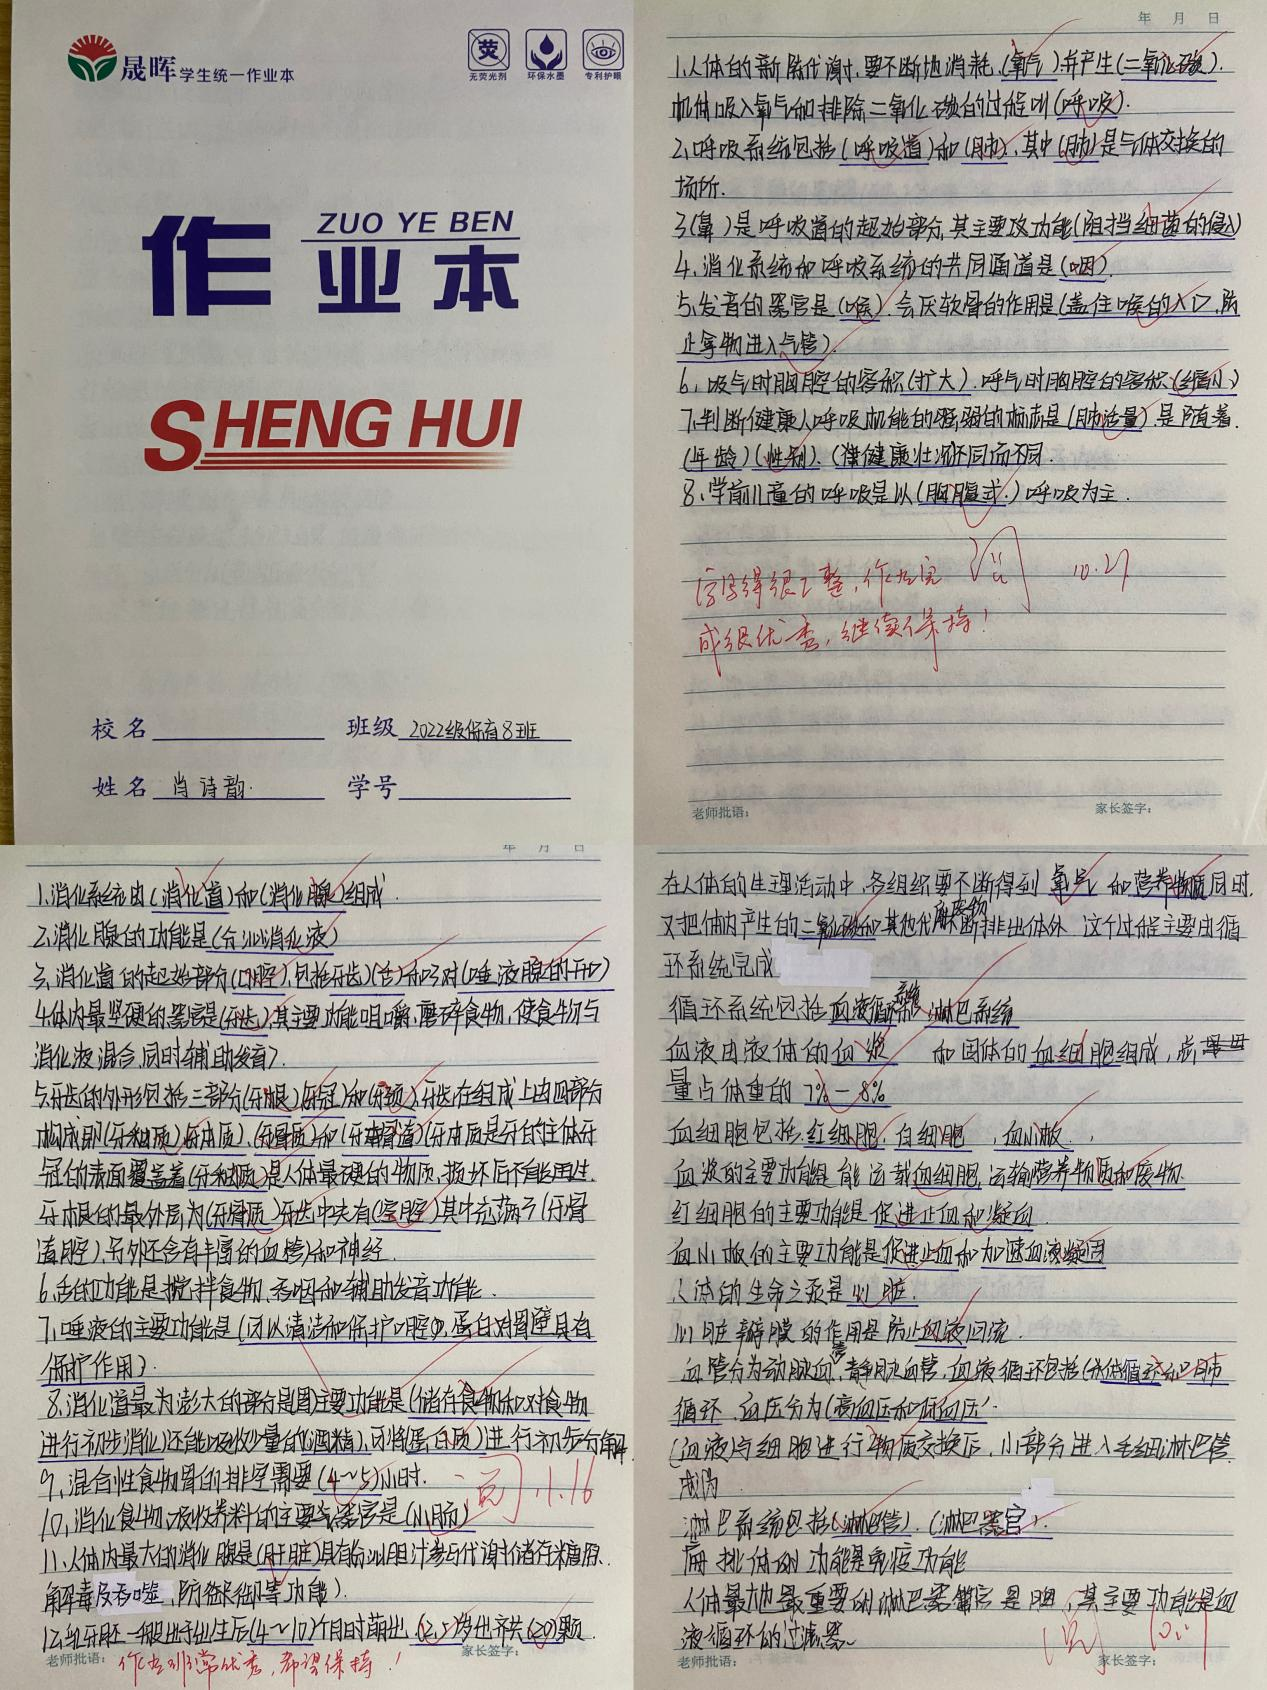 晟晖学生统一作业本
荧
无荧光剂
环保水墨
专利护眼
作业本
ZUO YE BEN
SHENG HUI
校名
班级 2022级保育8班
姓名 肖诗韵
学号
年 月 日
1.人体的新陈代谢,要不断地消耗(氧气)并产生(二氧化碳).
机体吸入氧气和排除二氧化碳的过程叫(呼吸).
2.呼吸系统包括(呼吸道)和(肺),其中(肺)是气体交换的
场所.
3(鼻)是呼吸道的起始部分,其主要功能(阻挡细菌的侵入)
4.消化系统和呼吸系统的共同通道是(咽).
5.发音的器官是(喉).会厌软骨的作用是(盖住喉的入口,防
止食物进入气管).
6.吸气时胸腔的容积(扩大).呼气时胸腔的容积(缩小)
7.判断健康人呼吸机能的强弱的标志是(肺活量).是随着.
(年龄)(性别).(健康壮况)不同而不同.
8.学前儿童的呼吸是以(胸腹式.)呼吸为主.
字写得很工整,作业完
成很优秀,继续保持!
10.27
老师批语:
家长签字:
年 月 日
1.消化系统由(消化道)和(消化腺)组成.
2.消化腺的功能是(分泌消化液)
3.消化道的起始部分(口腔),包括(牙齿)(舌)和3对(唾液腺的开口)
4.体内最坚硬的器官是(牙齿),其主要功能咀嚼,磨碎食物,使食物与
消化液混合,同时辅助发音).
5.牙齿的外形包括三部分(牙根)(牙冠)和(牙颈),牙齿在组成上由四部分
构成即(牙釉质)(牙本质),(牙骨质)和(牙髓)(牙本质是牙的主体牙
冠的表面覆盖着(牙釉质)是人体最硬的物质,损坏后不能再生.
牙根的最外层为(牙骨质)牙齿中央有(空腔)其中充满了(牙骨
道腔),另外还含有丰富的血管)和神经.
6.舌的功能是搅拌食物、吞咽和辅助发音功能.
7.唾液的主要功能是(可以清洁和保护口腔,蛋白对胃壁具有
保护作用).
8.消化道最为澎大的部分是(胃)主要功能是(储存食物和对食物
进行初步消化)还能吸收少量的(酒精),可将(蛋白质)进行初步分解
9.混合性食物胃的排空需要(4~5)小时.
11.16
10.消化食物、吸收养料的主要器官是(小肠)
11.人体内最大的消化腺是(肝脏)具有分泌胆汁参与代谢,储存米唐原、
解毒及吞噬,防御等功能).
12.乳牙胚一般出于出生后(4~10)个月时萌出,(2.5)岁出齐共(20)颗.
老师批语: 作业非常优秀,希望保持!
家长签字:
在人体的生理活动中,各组织要不断得到 氧气 和营养物质同时,
又把体内产生的二氧化碳和其他代谢废物不断排出体外,这个过程主要由循
环系统完成
循环系统包括血液循环系统,淋巴系统
血液由液体的血浆 和固体的血细胞组成,总
量占体重的 7%-8%
血细胞包括.红细胞.白细胞 ,血小板.
血浆的主要功能是 能运载血细胞,运输营养物质和废物.
红细胞的主要功能是促进止血和凝血.
血小板的主要功能是促进止血和加速血液凝固
人体的生命之泵是心脏.
心脏瓣膜的作用是防止血液回流.
血管分为动脉血管,静脉血管,血液循环包括(体循环和肺
循环.血压分为(高血压和低血压).
(血液)与细胞进行物质交换后,小部分进入毛细淋巴管
成为
淋巴系统包括(淋巴管).(淋巴器官).
扁挑体的功能是免疫功能
人体最大也最重要的淋巴器官是脾,其主要功能是血
液循环的过滤器.
老师批语:
家长签字: